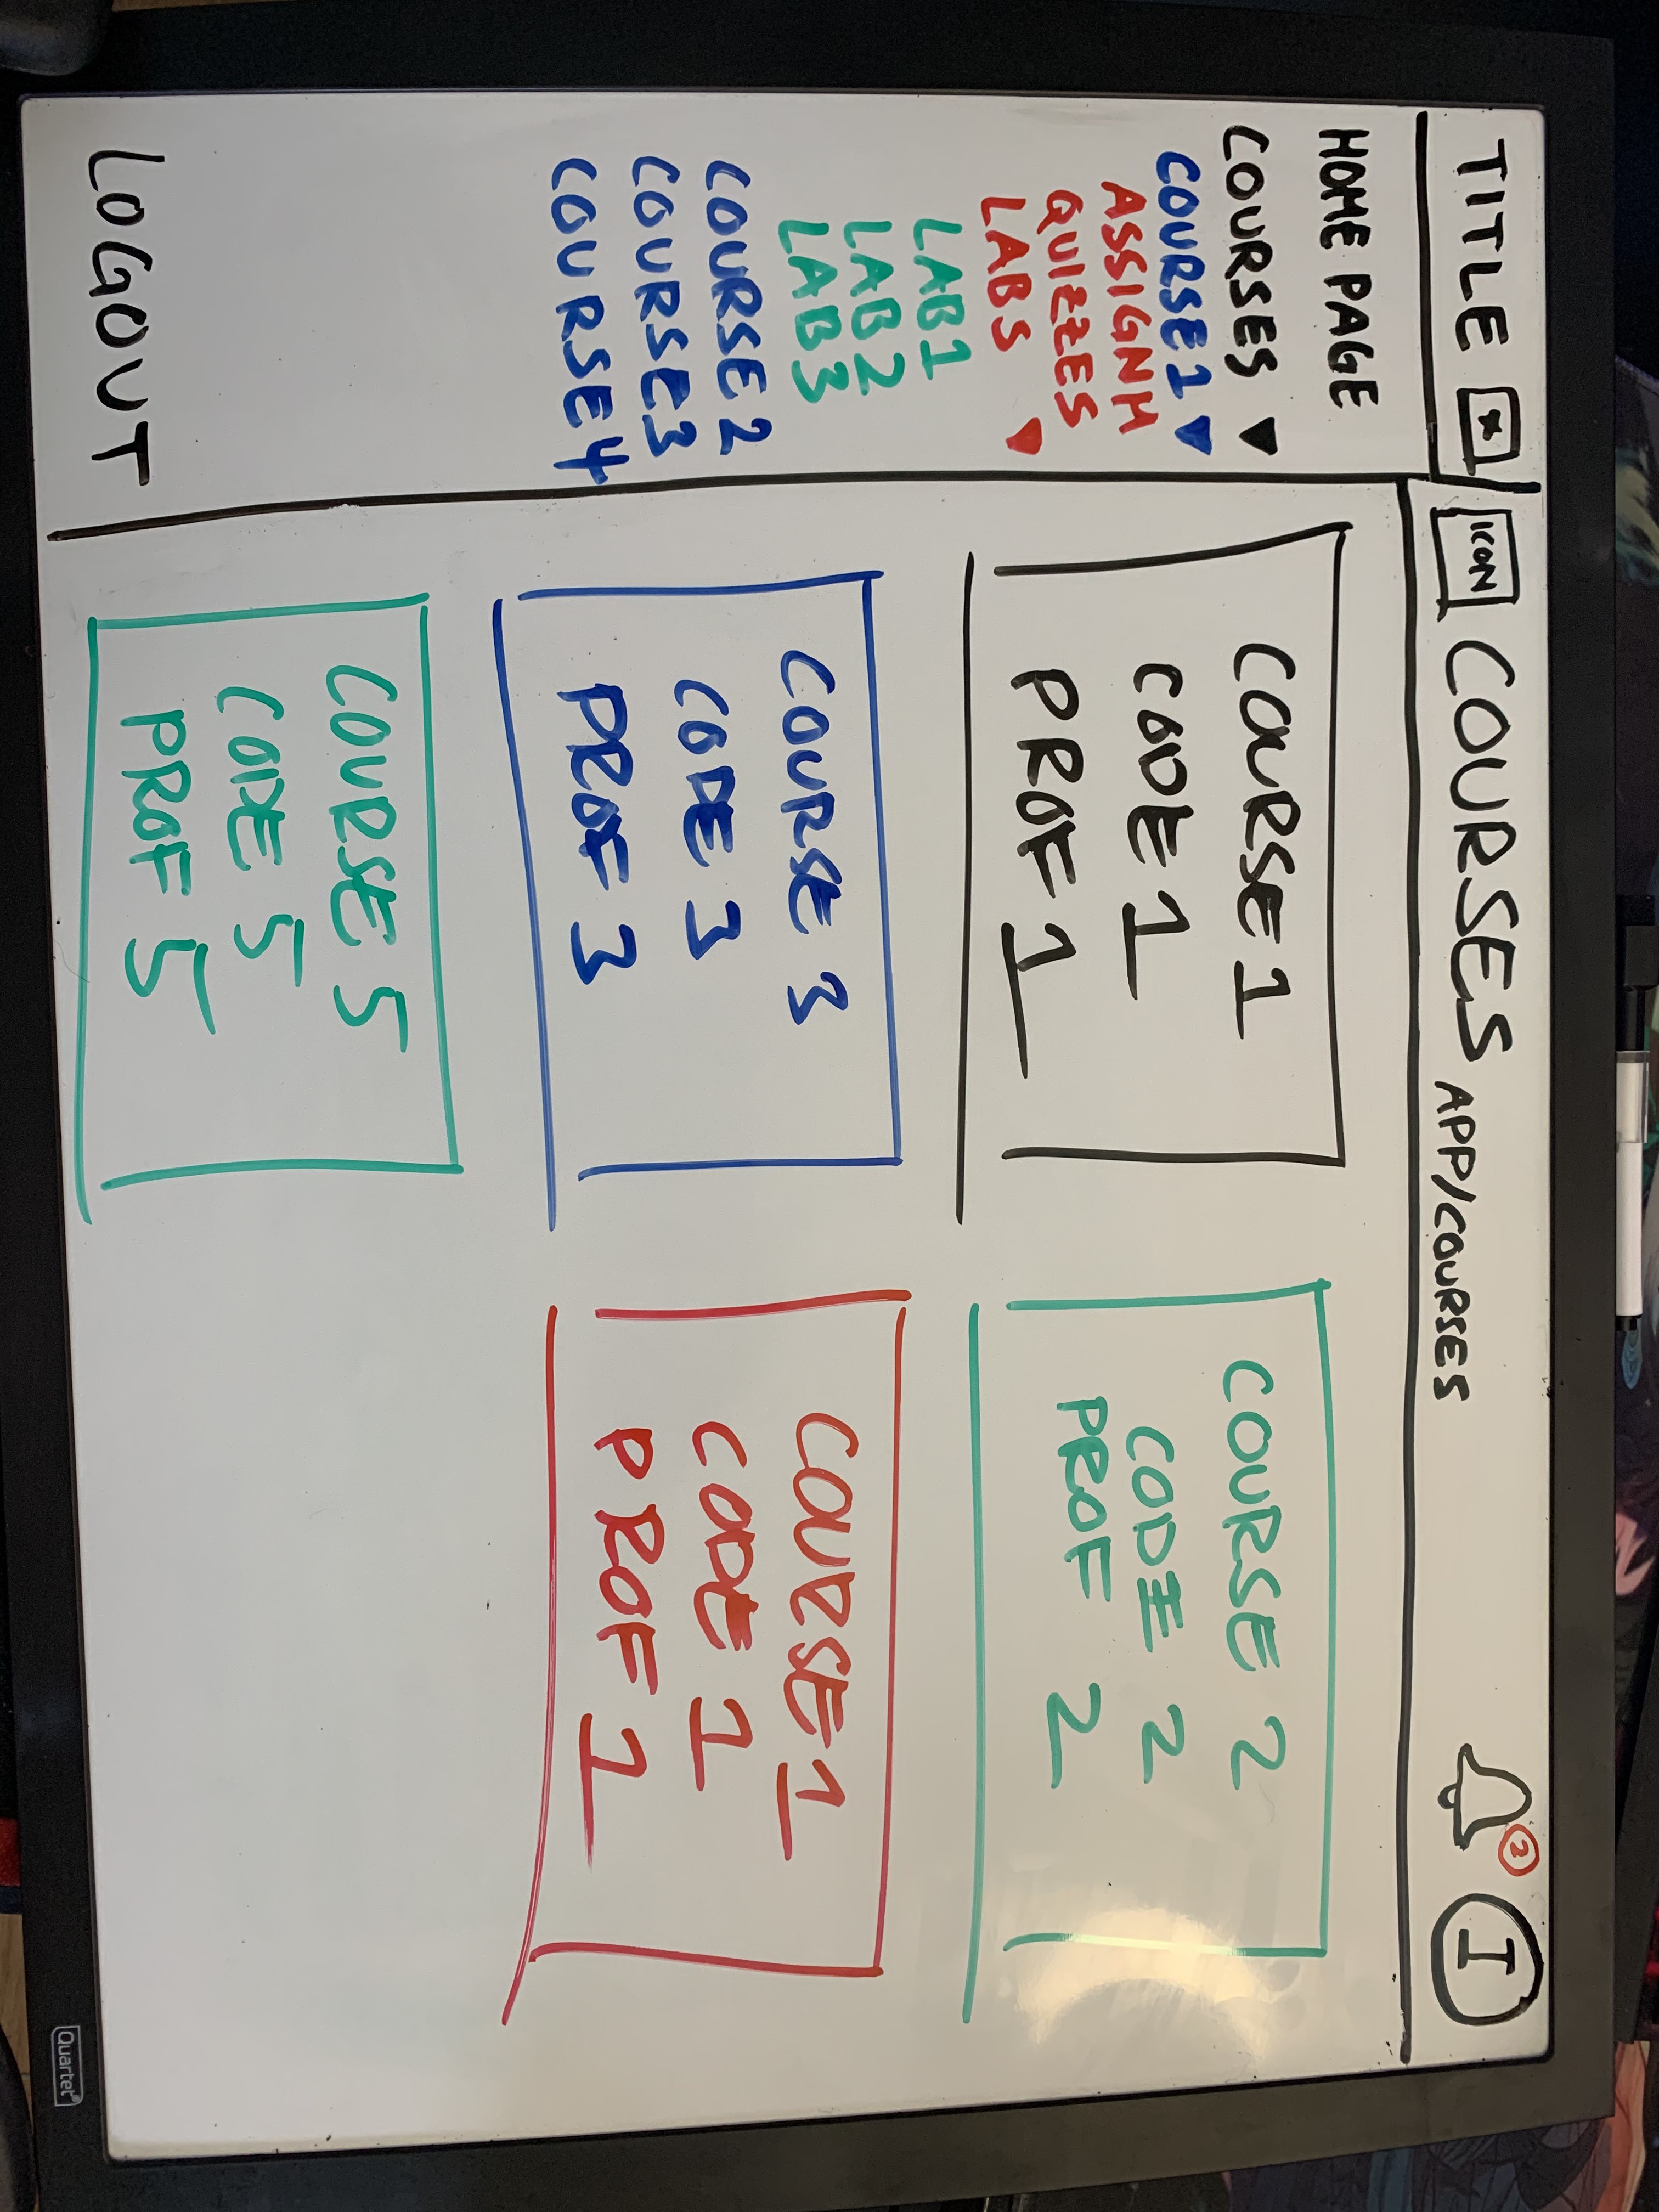 TITLE
ICON
COURSES
APP/COURSES
2
I
HOME PAGE
COURSES
COURSE 1
ASSIGNM
QUIZZES
LABS
LAB 1
LAB 2
LAB 3
COURSE 2
COURSE 3
COURSE 4
LOGOUT
COURSE 1
CODE 1
PROF 1
COURSE 2
CODE 2
PROF 2
COURSE 3
CODE 3
PROF 3
COURSE 1
CODE 1
PROF 1
COURSE 5
CODE 5
PROF 5
Quartet